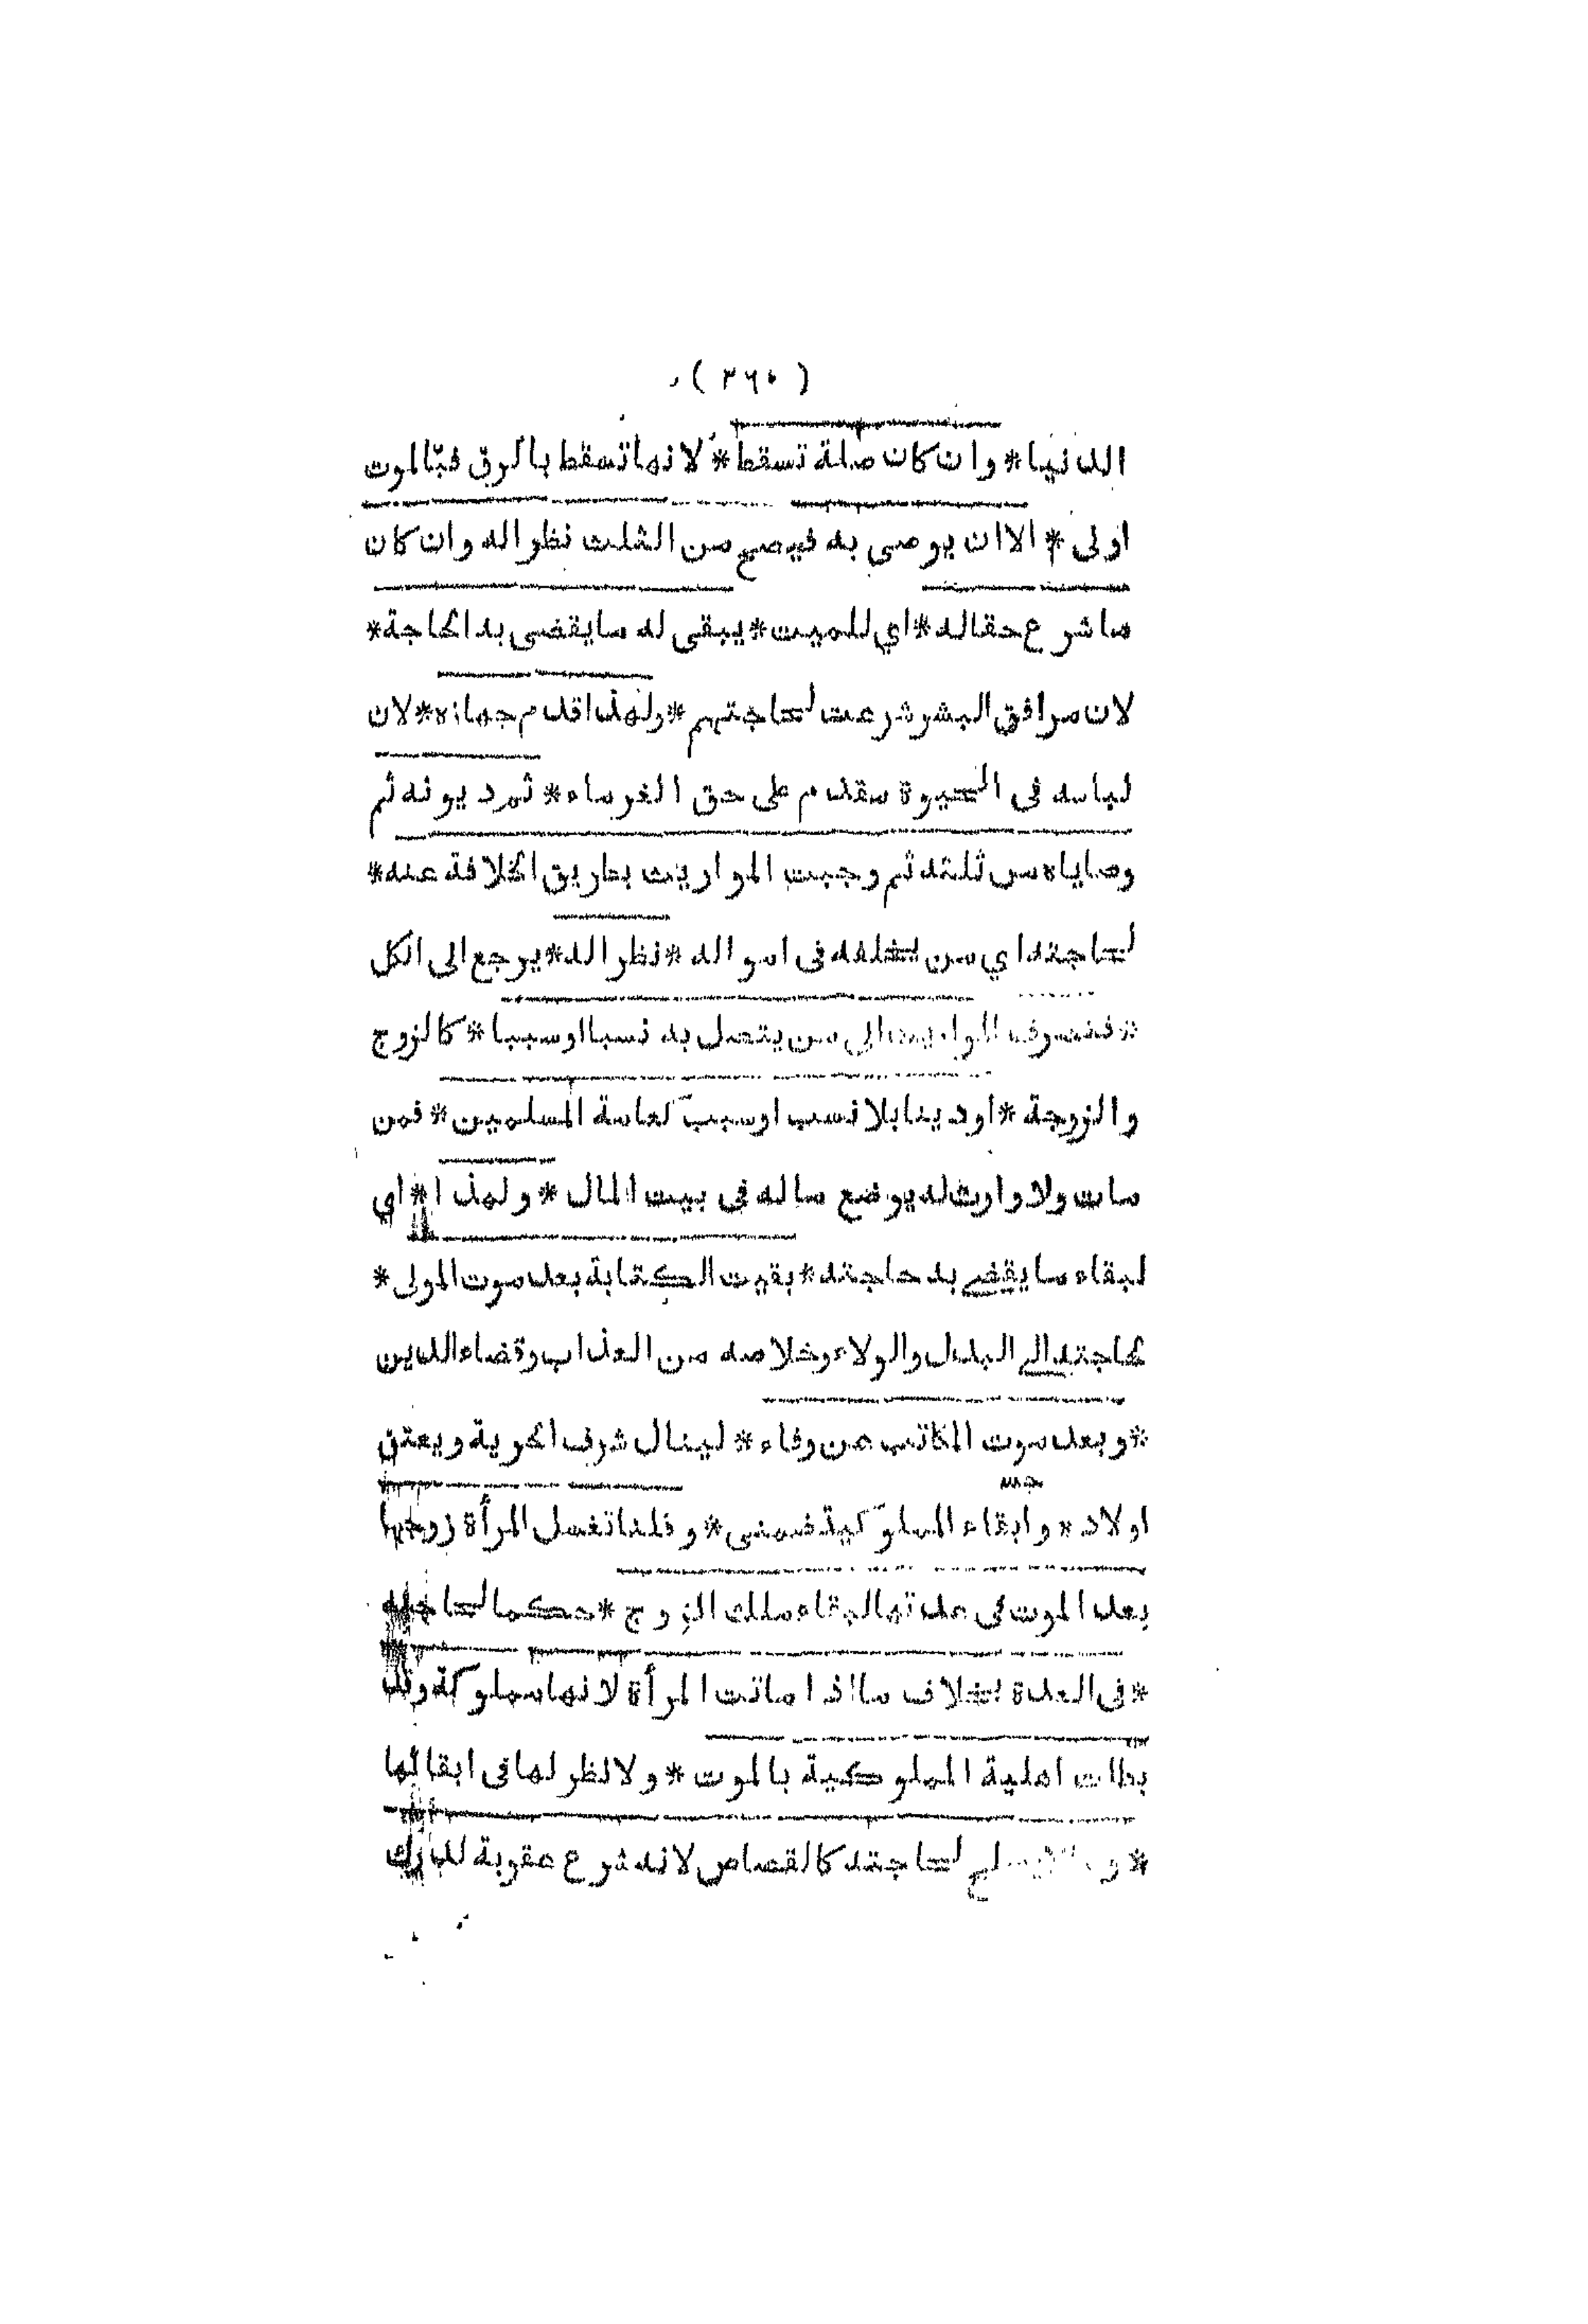 ( ٣٦٠ )
الدنيا * وان كان صلة تسقط * لانها تسقط بالرق فبالموت
اولى * الا ان يوصى به فيصح من الثلث نظرا له وان كان
ما شرع حقاله * اي للميت * يبقى له ما يقضى به الحاجة *
لان مرافق البشر شرعت لحاجتهم * ولهذا قدم جهازه * لان
لباسه فى الحيوة مقدم على حق الغرماء * ثم ديونه ثم
وصاياه من ثلثه ثم وجبت المواريث بطريق الخلافة عنه *
لحاجته اي من يخلفه فى امواله * نظرا له * يرجع الى الكل
* فتصرف المواريث الى من يتصل به نسبا او سببا * كالزوج
والزوجة * او دينا بلا نسب او سبب كعامة المسلمين * فمن
مات ولا وارث له يوضع ماله فى بيت المال * ولهذا * اي
لبقاء ما يقضى به حاجته * بقيت الكتابة بعد موت المولى *
لحاجته الى البدل والولاء وخلاصه من العذاب وقضاء الدين
* وبعد موت المكاتب عن وفاء * لينال شرف الحرية ويعتق
اولاده وابقاء المملوكية ضمنى * وقلنا تغسل المرأة زوجها
بعد الموت فى عدتها لبقاء ملك الزوج * حكما لحاجته
* فى العدة بخلاف ما اذا ماتت المرأة لانها مملوكة وقد
بطلت اهلية المملوكية بالموت * ولا نظر لها فى ابقائها
* و لحاجته كالقصاص لانه شرع عقوبة للدرك